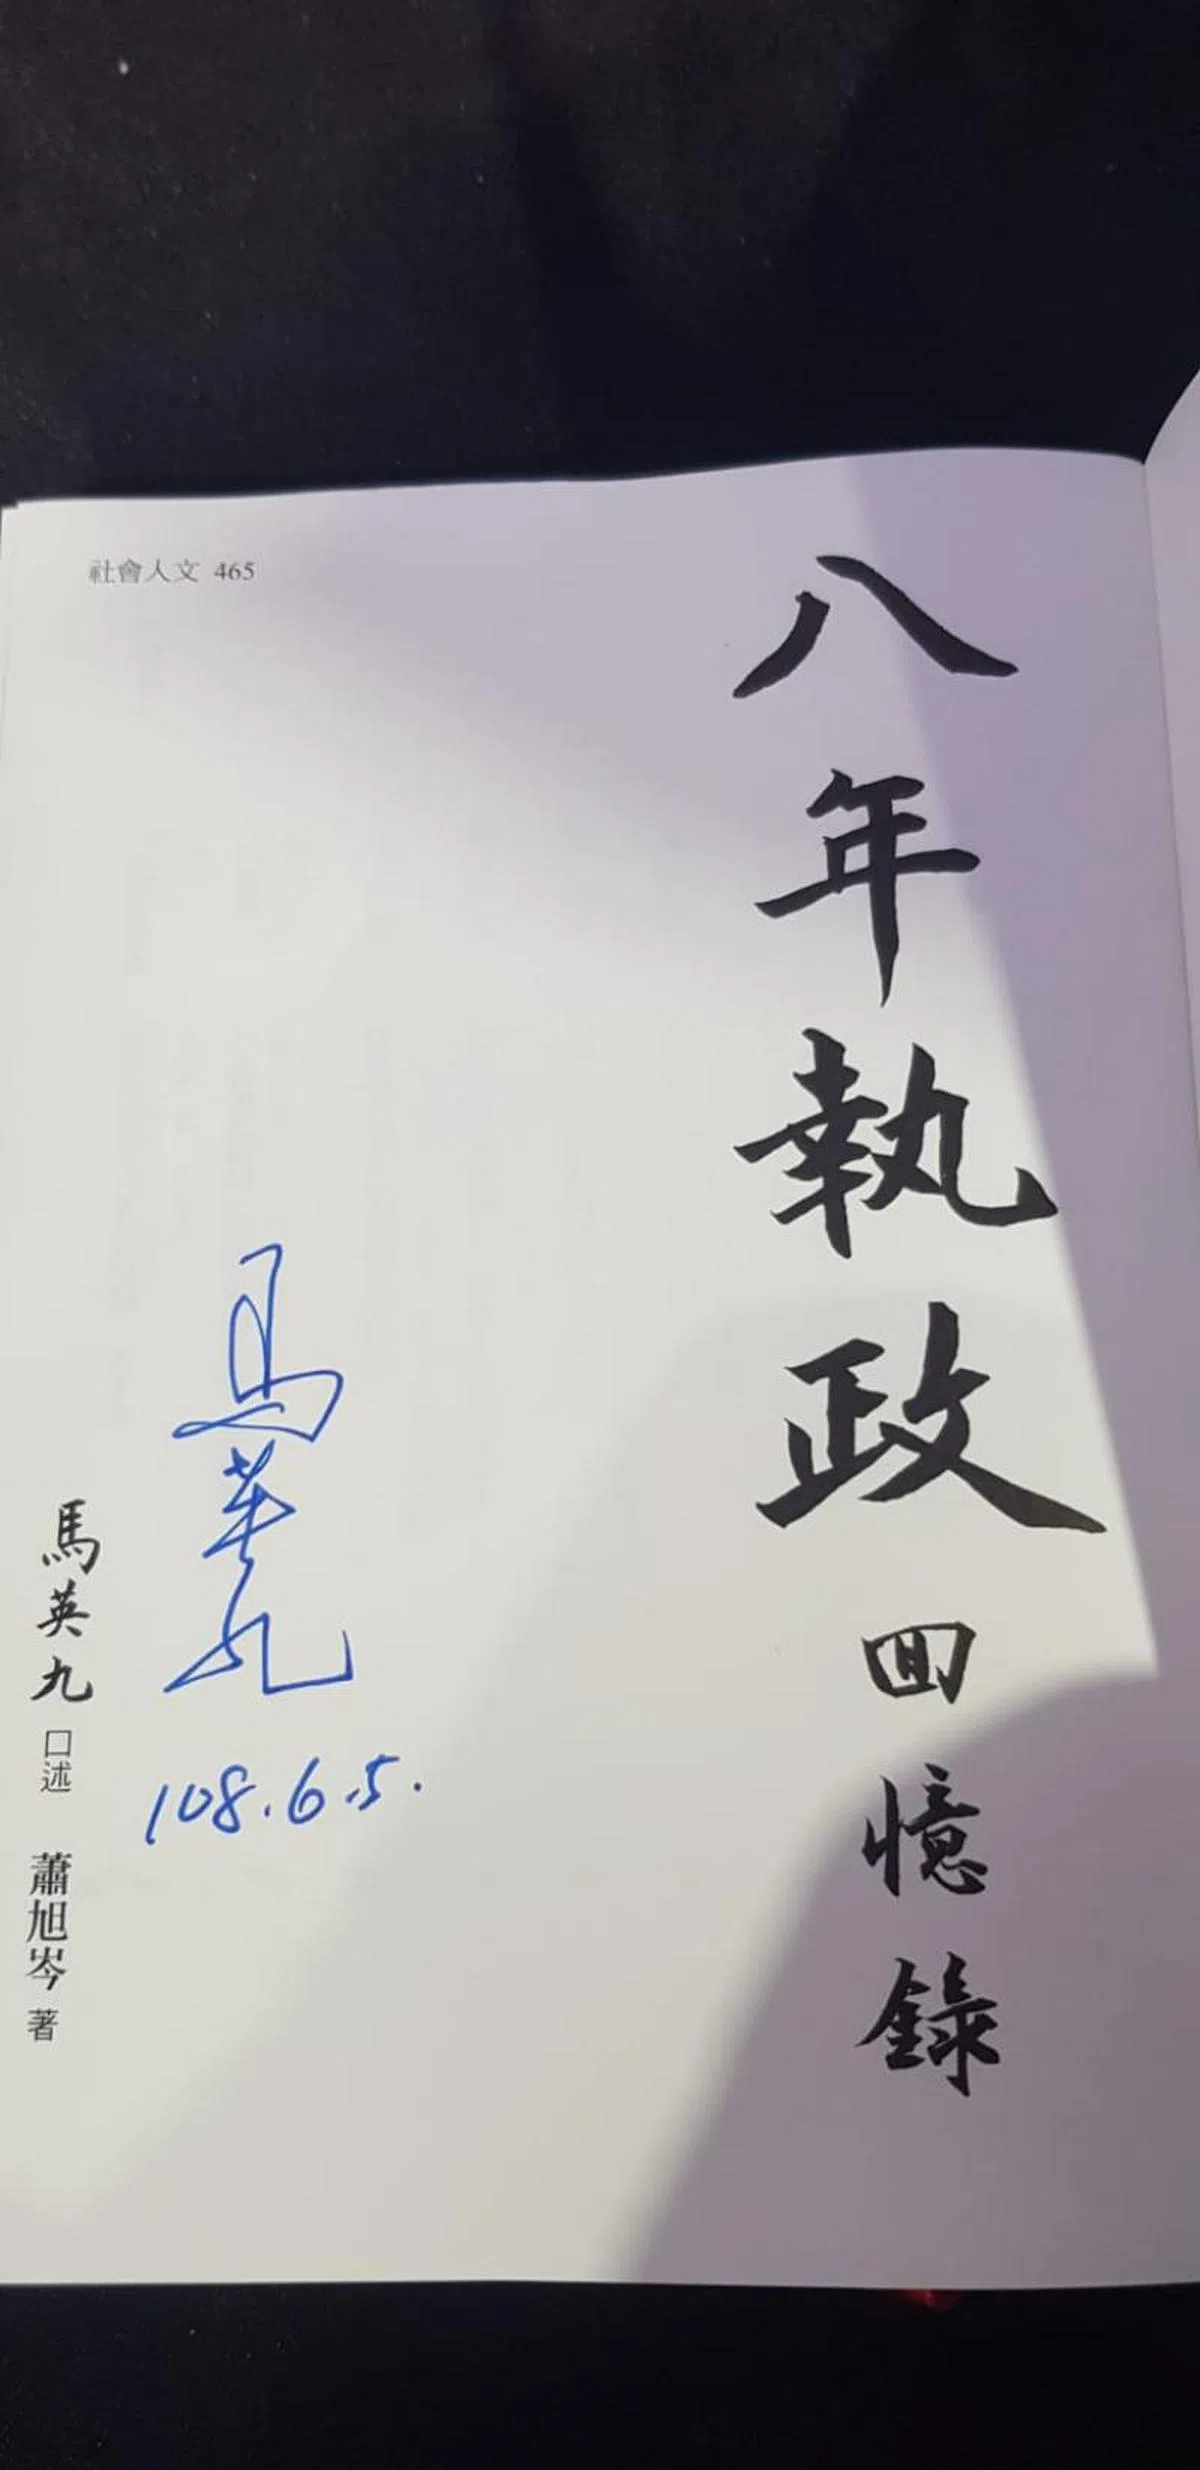 社會人文 465
八年執政回憶錄
馬英九
108.6.5.
馬英九 口述 蕭旭岑 著